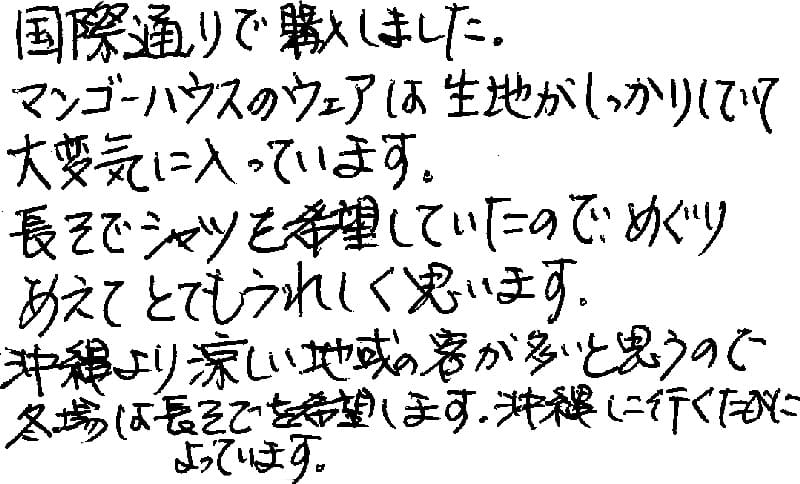 国際通りで購入しました。
マンゴーハウスのウェアは生地がしっかりしていて
大変気に入っています。
長そでシャツを希望していたので、めぐり
あえてとてもうれしく思います。
沖縄より涼しい地域の客が多いと思うので
冬場は長そでを希望します。沖縄に行くたびに
よっています。